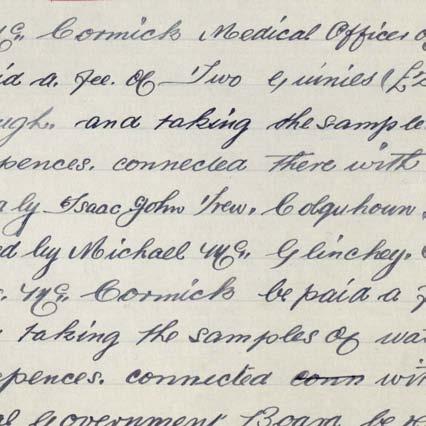 Mc. Cormick Medical Officer o
id a. fee. of Two Guinies (£2
ugh. and taking the sample
pences. connected there with
by Isaac John Trew. Colquhoun
ed by Michael Mc. Glinchey.
Mc. Cormick be paid a f
taking the samples of wa
epences. connected conn wit
Government Board be